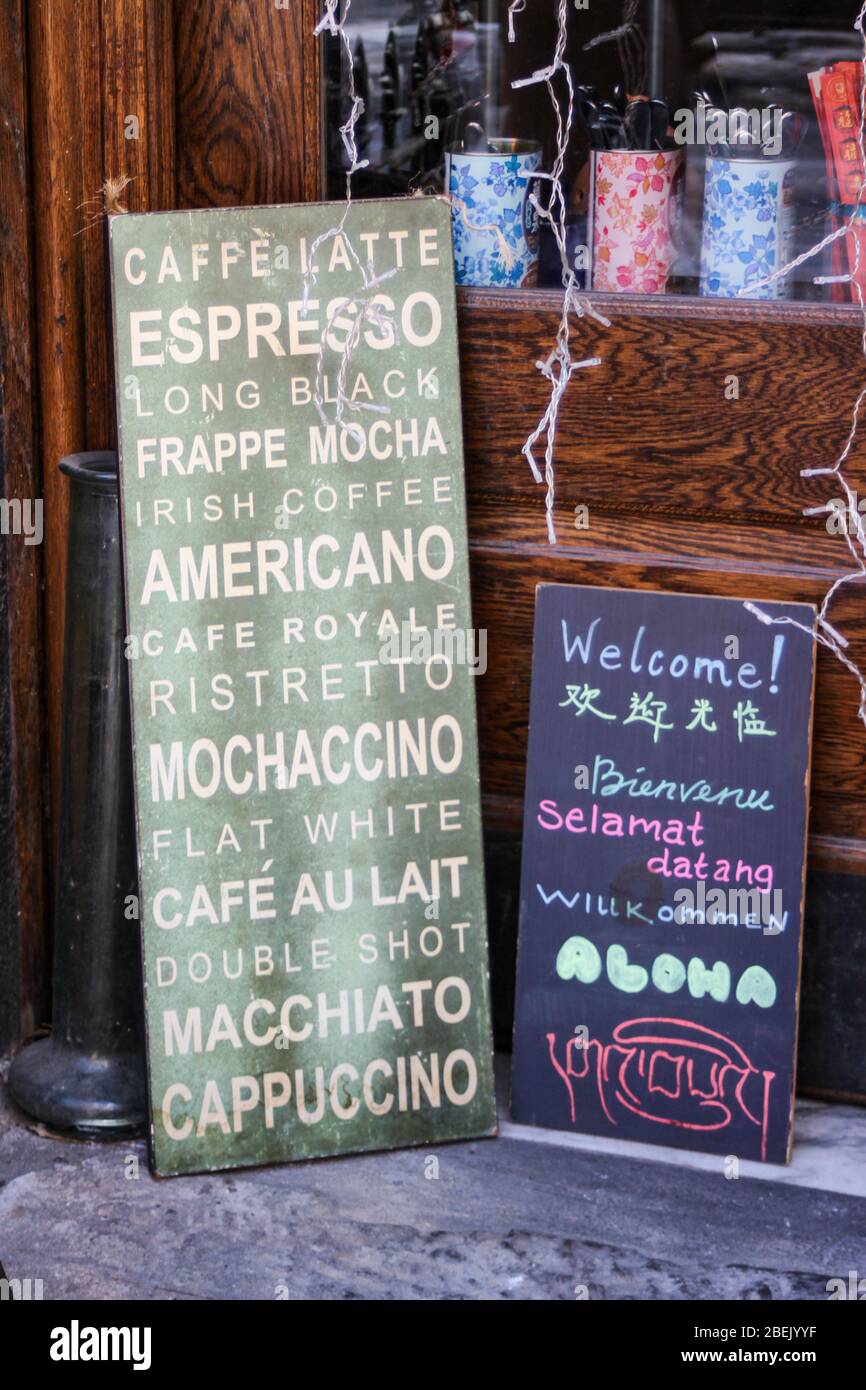 CAFFE LATTE
ESPRESSO
LONG BLACK
FRAPPE MOCHA
IRISH COFFEE
AMERICANO
CAFE ROYALE
RISTRETTO
MOCHACCINO
FLAT WHITE
CAFÉ AU LAIT
DOUBLE SHOT
MACCHIATO
CAPPUCCINO
Welcome!
欢迎光临
Bienvenu
Selamat
datang
WILLKOMMEN
ALOHA
alamy
Image ID: 2BEJYYF
www.alamy.com